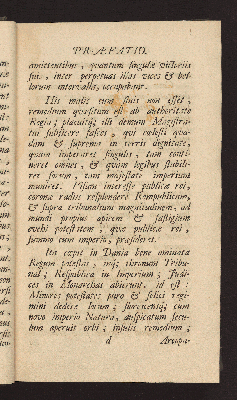 PRÆFATIO.
amittentibus, quantum singulæ victoriis
suis, inter perpetuas illas vices & bel-
lorum intervalla, occupabant.
His malis unus finis non esset,
remedium quæsitum est ab authoritate
Regia; placuitq; illi demum Magistra-
tui subjicere fasces, qui cœlesti qua-
dam & suprema in terris dignitate,
quam imperaret singulis, tam conti-
neret omnes, & quam legibus stabili-
ret forum, tam majestate imperium
muniret. Visum interesse publicæ rei,
coronæ radiis resplendere Rempublicam,
& supra tribunatum magnitudinem, ad
mundi propius apicem & fastigium
evehi potestatem; quæ publicæ rei,
summo cum imperio, præsideret.
Ita cœpit in Dania bene animata
Regum potestas, itaq; thronum Tribu-
nal; Respublica in Imperium; Judi-
ces in Monarchas abierunt. id est:
Minores potestates puro & felici regi-
mini dedere locum; surrexitq; cum
novo imperio Natura, auspicatum secu-
lum aperuit orbi; insulis remedium;
d Areopa-